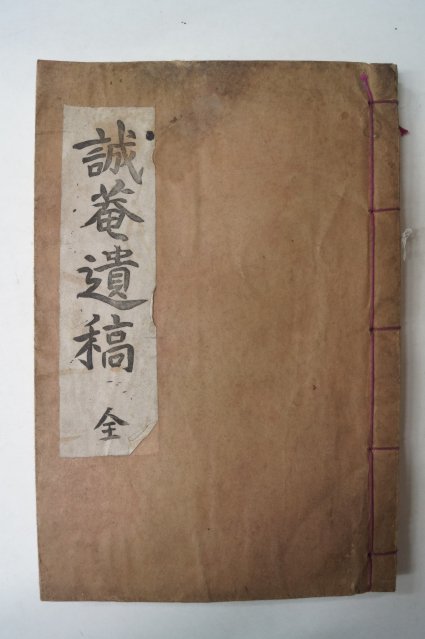 誠菴遺稿 全